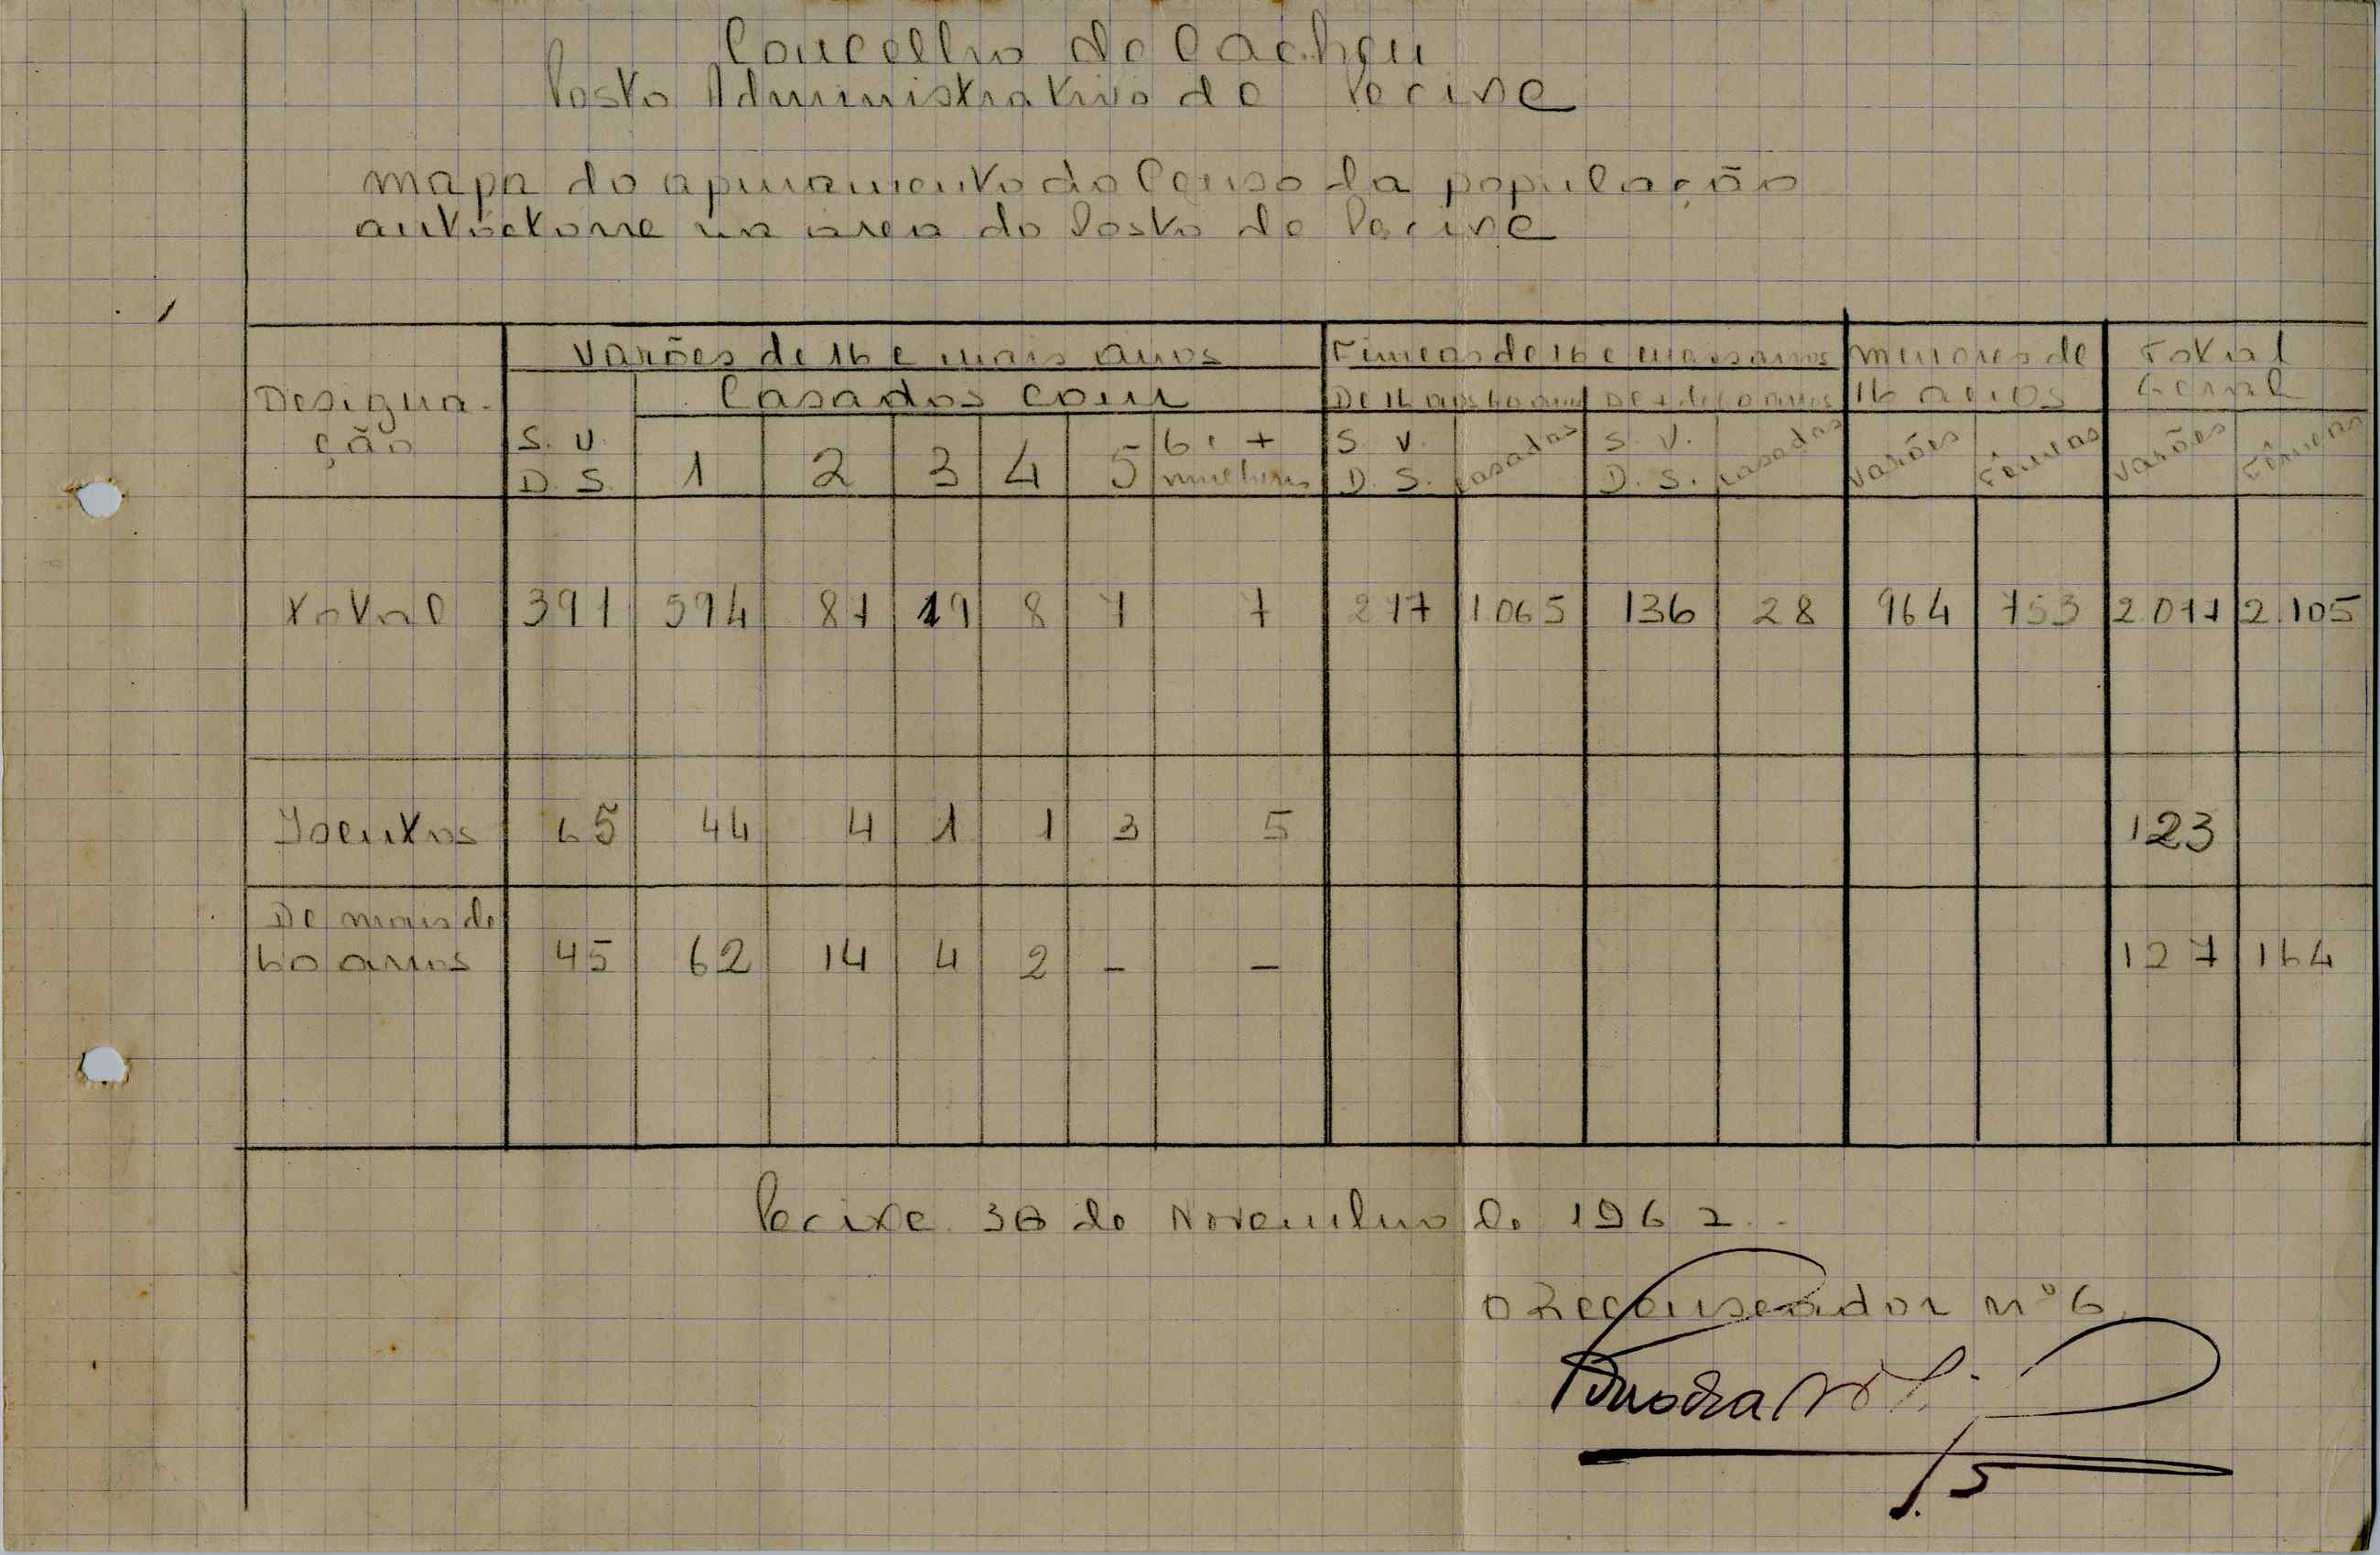 Concelho de Cacheu
Posto Administrativo de Pecixe
Mapa do apuramento do Censo da população
autóctone na area do Posto de Pecixe
Varões de 16 e mais anos Fêmeas de 16 e mais anos Menores de Total
Designa- Casados com De 16 aos 60 anos De + de 60 anos 16 anos Geral
ção S. V. 1 2 3 4 5 6 e + S. V. casadas S. V. casadas Varões Fêmeas Varões Fêmeas
D. S. mulheres D. S. D. S.
Total 391 594 87 19 8 7 7 217 1.065 136 28 964 753 2.077 2.105
Isentos 65 44 4 1 1 3 5 123
De mais de
60 anos 45 62 14 4 2 - - 127 164
Pecixe 30 de Novembro de 1962.
O Recenseador nº 6,